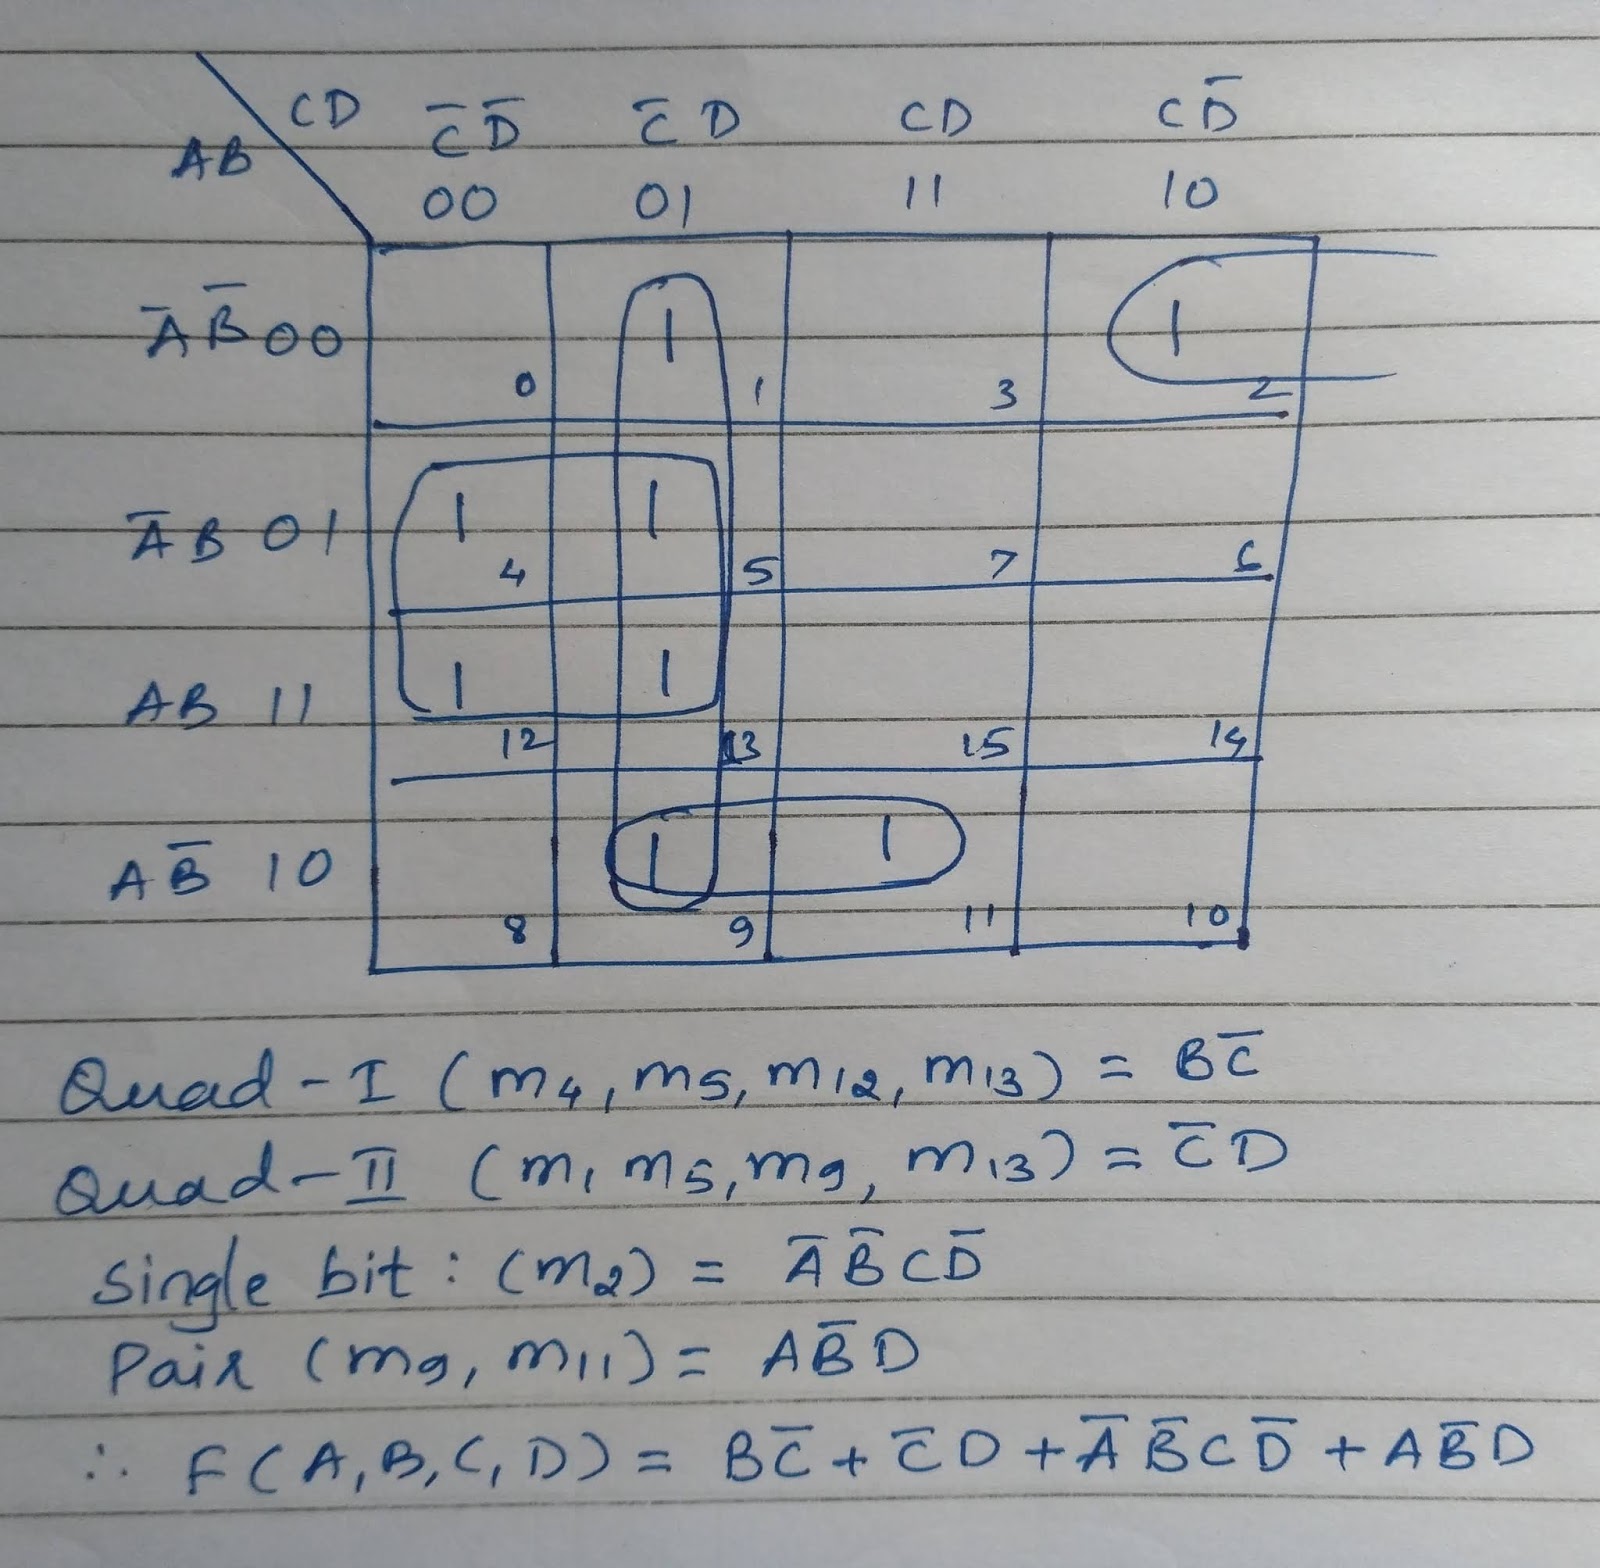 CD C̅D̅ C̅D CD CD̅
AB 00 01 11 10
A̅B̅ 00 1 1
0 1 3 2
A̅B 01 1 1
4 5 7 6
AB 11 1 1
12 13 15 14
AB̅ 10 1 1
8 9 11 10
Quad-I (m4, m5, m12, m13) = BC̅
Quad-II (m1 m5, m9, m13) = C̅D
Single bit: (m2) = A̅B̅CD̅
Pair (m9, m11) = AB̅D
∴ F(A,B,C,D) = BC̅ + C̅D + A̅B̅CD̅ + AB̅D